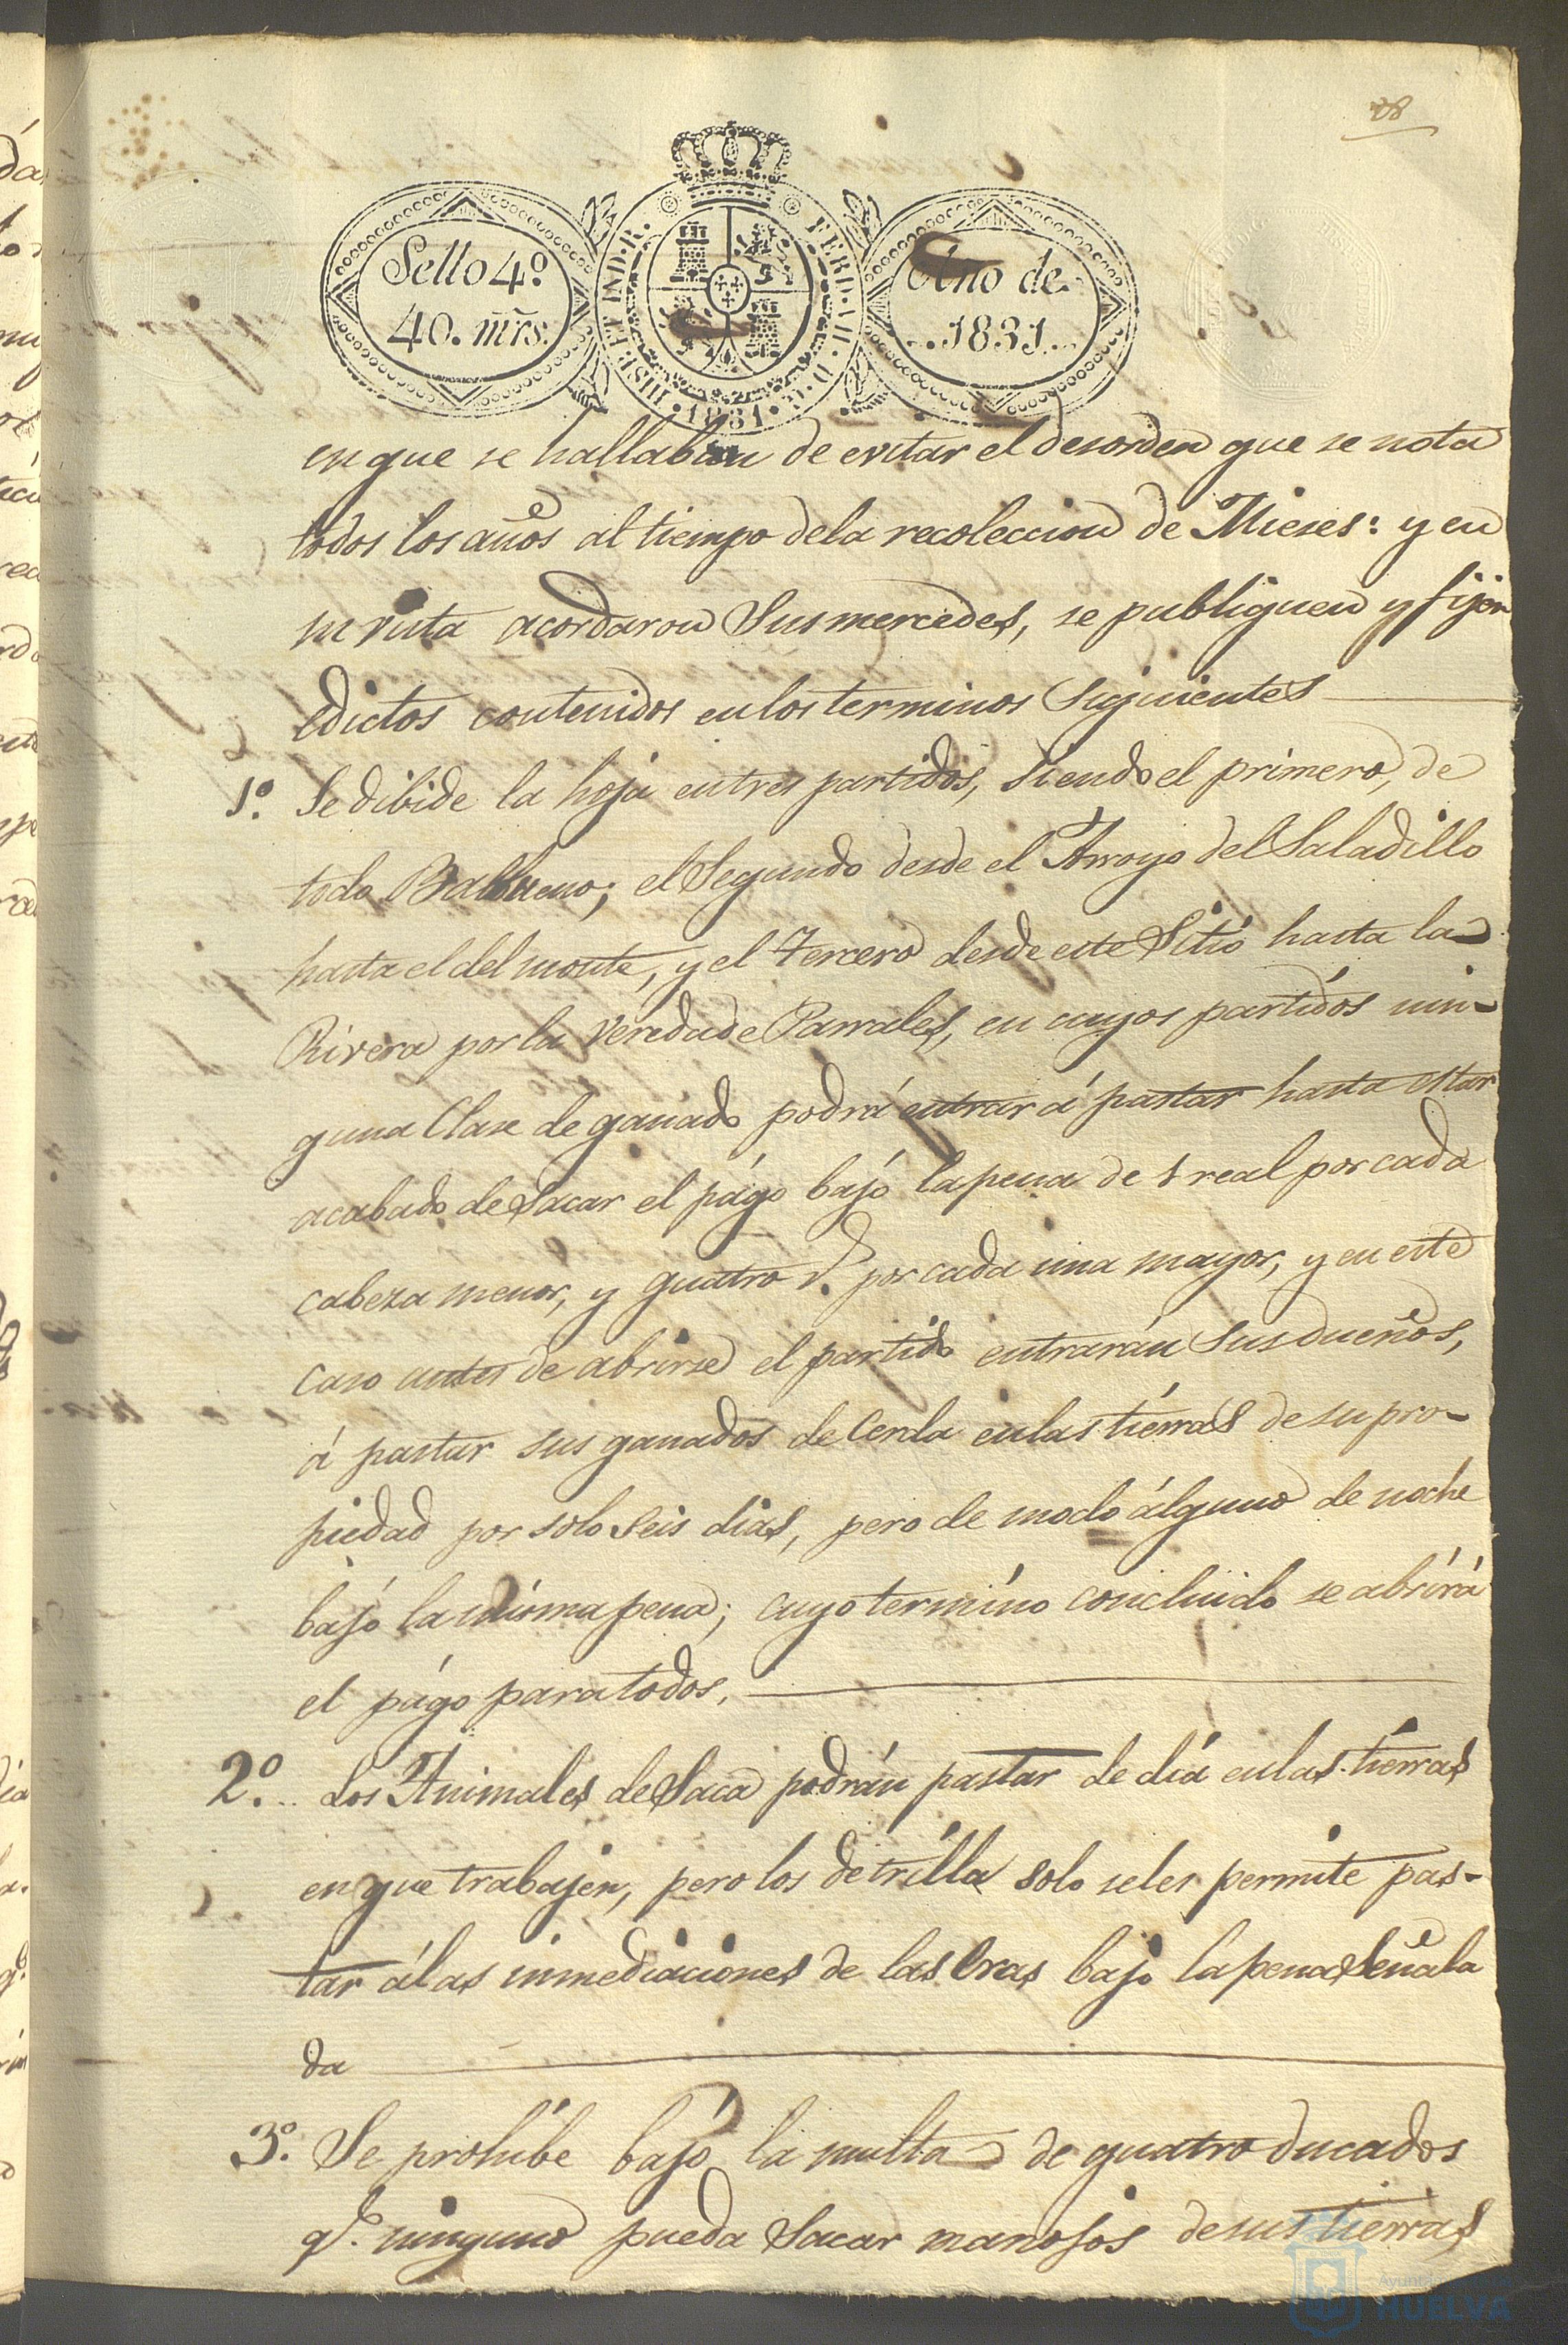 28
Sello 4º
40. mrs.
HISP. ET IND. R.
FERD. VII. D. G.
1831
Año de
1831
en que se hallaban de evitar el desorden que se nota
todos los años al tiempo dela recoleccion de Mieses: y en
su vista acordaron Sus mercedes, se publiquen y fijen
edictos contenidos en los terminos Siguientes
1º. Se dibide la hoja en tres partidos, Siendo el primero, de
todo Balbueno; el Segundo desde el Arroyo del Saladillo
hasta el del monte, y el Tercero desde este Sitió hasta la
Rivera por la Vereda de Parrales, en cuyos partidos nin-
guna Clase de ganado podrá entrar á pastar hasta estar
acabado de Sacar el págo bajó la pena de 1 real por cada
cabeza menor, y quatro r.s por cada una mayor, y en este
caso antes de abrirse el partido entrarán Sus dueños,
á pastar sus ganados de Cerda en las tierras de su pro-
piedad por solo Seis dias, pero de modo álguno de noche
bajó la misma pena; cuyo termino concluido se abrirá
el págo para todos.
2º. Los Animales de Saca podrán pastar de día en las tierras
en que trabajen, pero los de trilla solo se les permite pas-
tar á las inmediaciones de las Eras bajo la pena Señala
da
3º. Se prohibe bajó la multa de quatro ducados
q.e ninguno pueda Sacar manojos de sus tierras
Ayuntamiento de
HUELVA